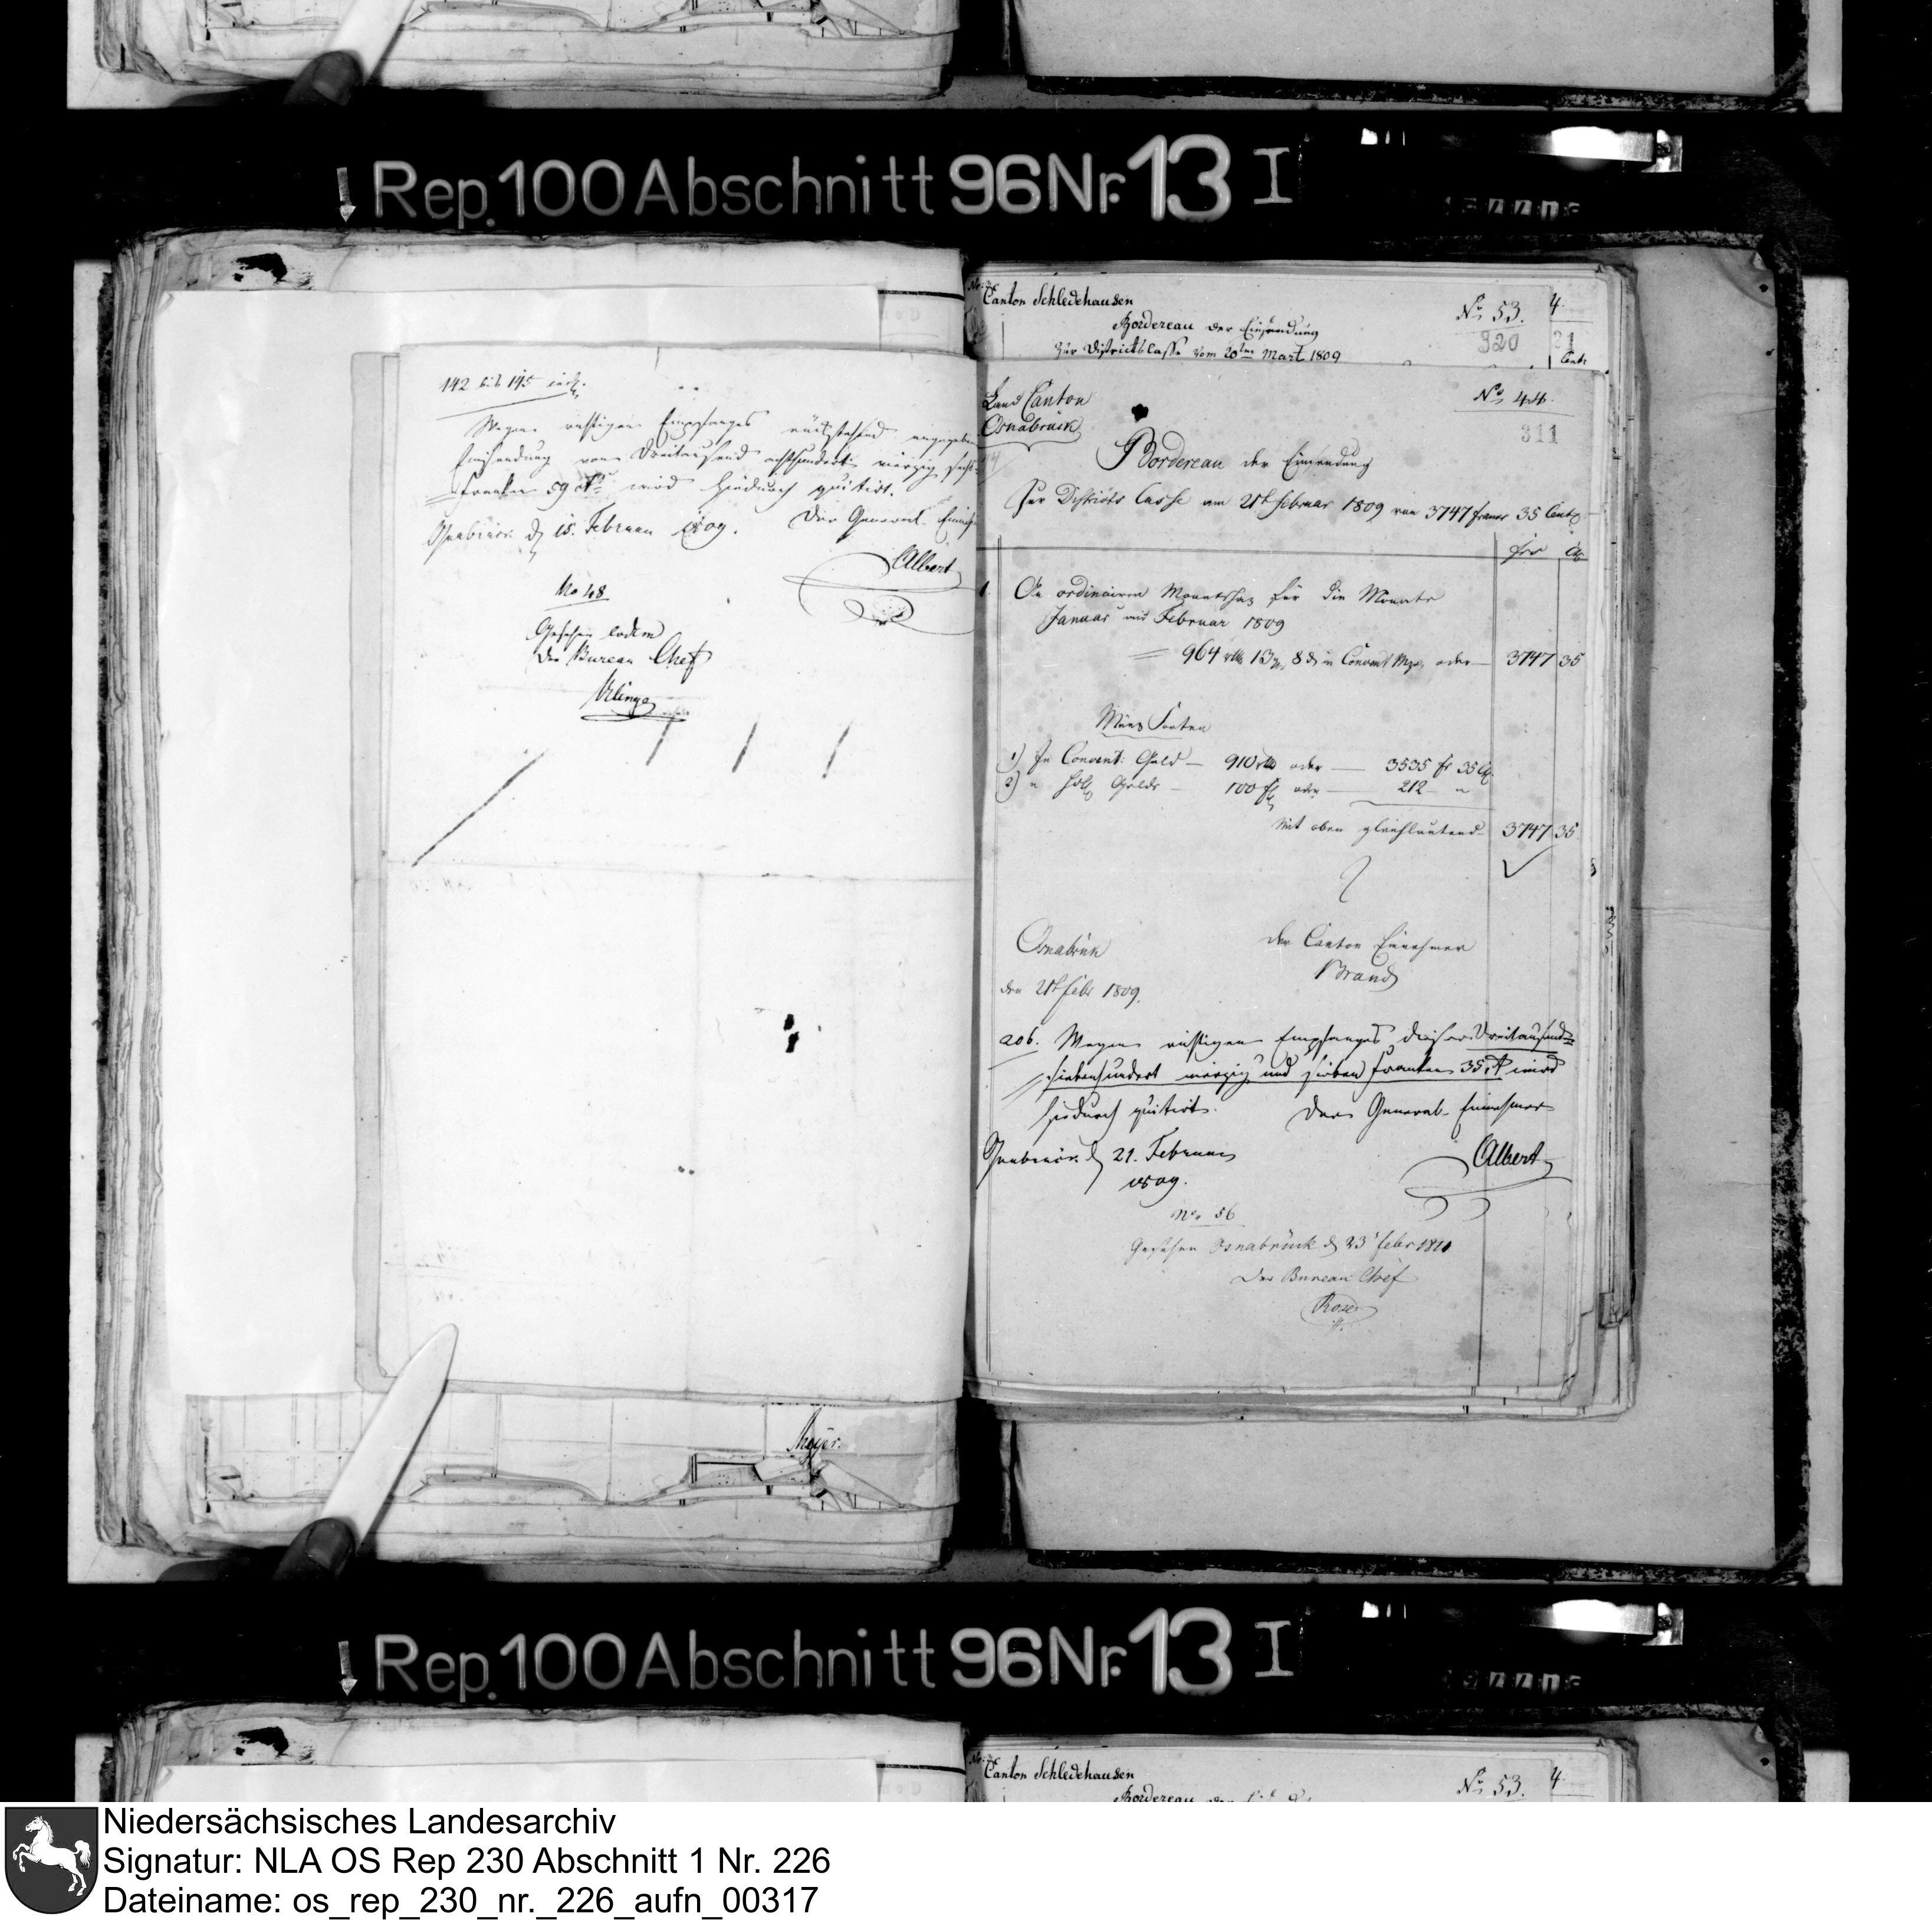 Rep. 100 Abschnitt 96 Nr. 13 I
142 bis 145 incl.
Wegen richtigen Empfanges
Einsendung von Dreitausend achthundert vierzig sechs
Franken 59 Ct. wird hiedurch quitirt.
Osnabrück d 15. Februar 1809. Der General-Einneh
Albert
No 48
Gesehen eodem
Der Bureau Chef
Meyer.
Canton Schledehausen
No 53. 4
Bordereau der Einsendung
320 21
Zur Districtscasse vom 20ten Mart 1809
Cents
Land Canton
Osnabrück
No 44.
311
Bordereau der Einsendung
Zur Districts Casse am 21t Februar 1809 von 3747 francs 35 Cents
frs Cs
1. An ordinairem Monatschaz für die Monate
Januar und Februar 1809
964 rtl 13 8 in Convent Mze, oder 3747 35
Münz Sorten
1) In Convent: Geld — 910 rtl oder — 3535 fr 35 C
2) " Holl Gelde — 100 fl oder — 212 "
Mit oben gleichlautend 3747 35
Osnabrück
den 21t Febr 1809.
der Canton Einnehmer
Brand
206. Wegen richtigen Empfanges dieser Dreitausend
siebenhundert vierzig und sieben Franken 35 Ct wird
hiedurch quitirt. Der General-Einnehmer
Osnabrück d 21. Februar
1809.
Albert
No. 56
Gesehen Osnabrück d 23t Febr 1810
Der Bureau Chef
Rep. 100 Abschnitt 96 Nr. 13 I
Canton Schledehausen
No 53. 4
Niedersächsisches Landesarchiv
Signatur: NLA OS Rep 230 Abschnitt 1 Nr. 226
Dateiname: os_rep_230_nr._226_aufn_00317